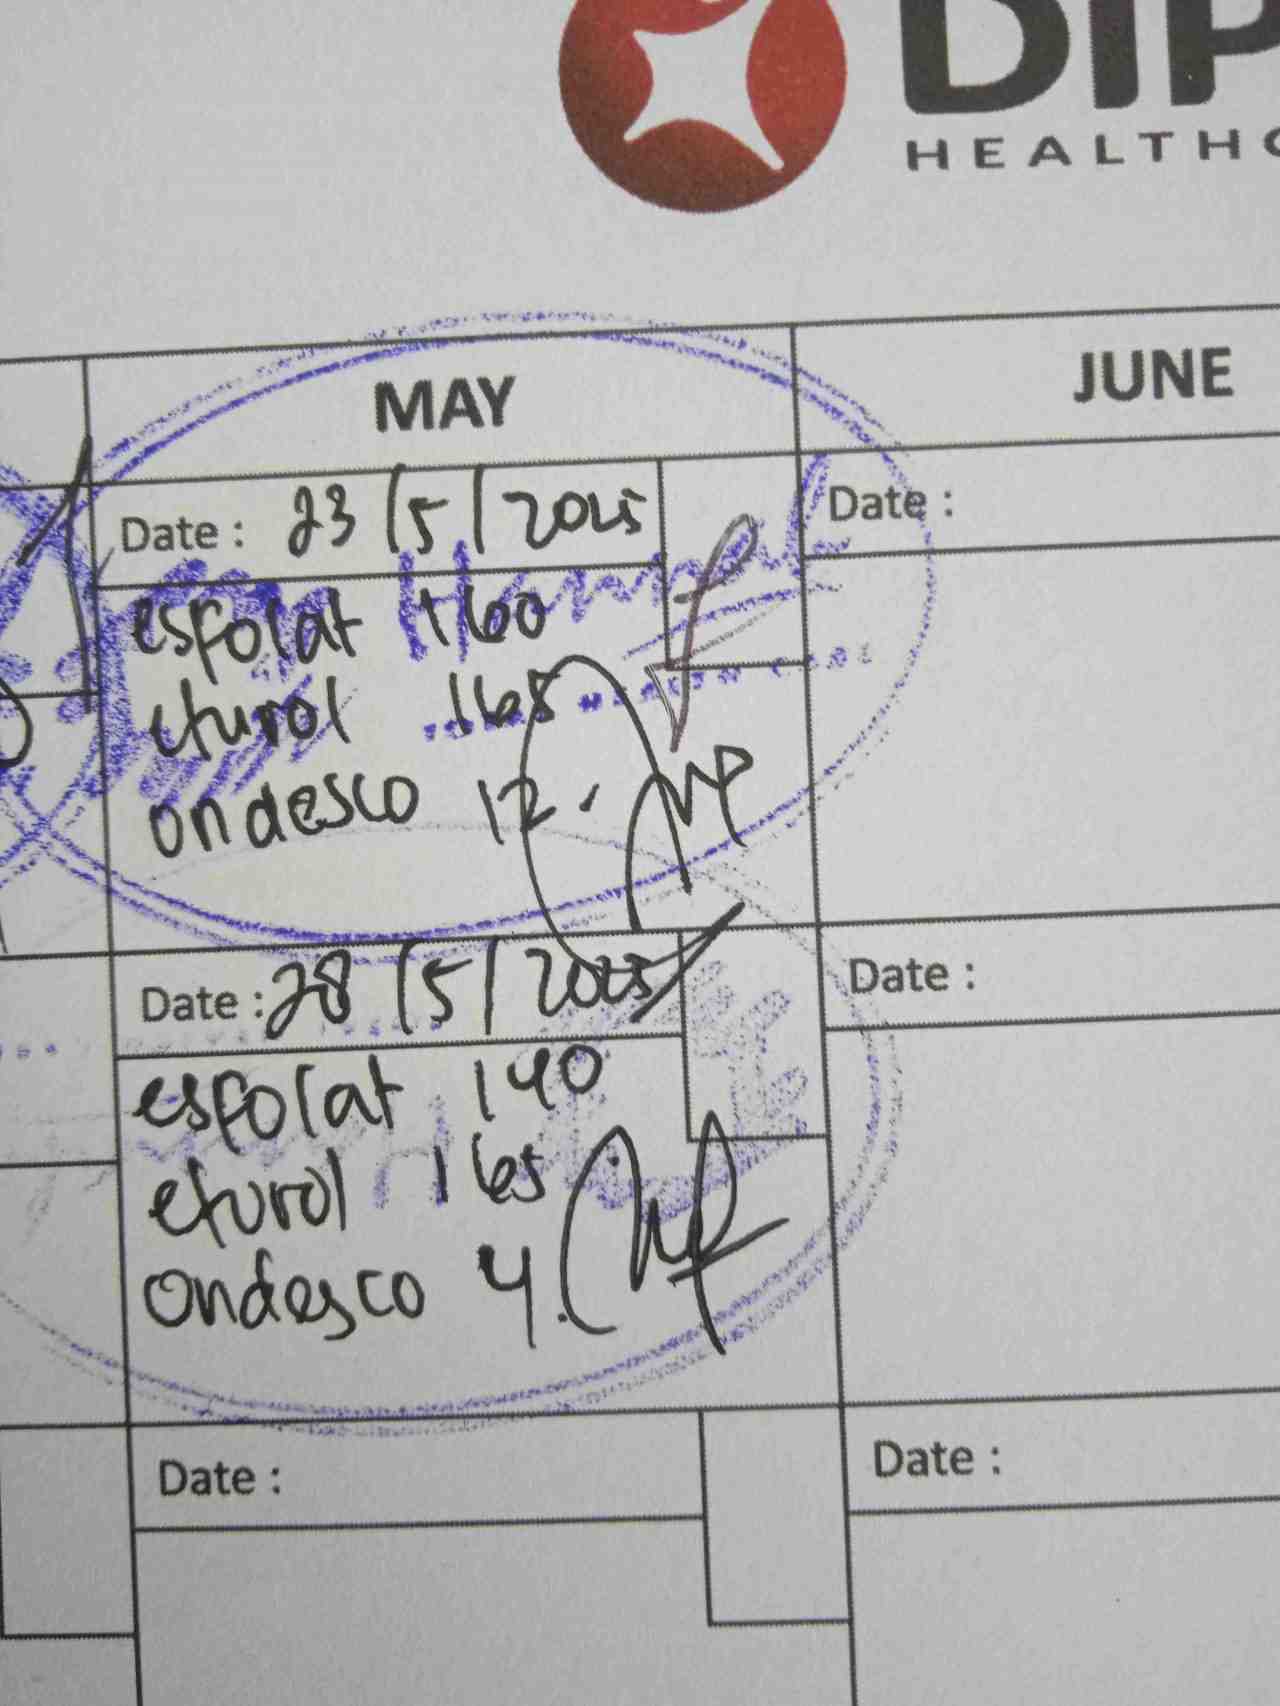 DIP
HEALTHC
MAY
JUNE
Date : 23/5/2025
Date :
esfolat 160
eturol 165
ondesco 12.
Date : 28/5/2025
Date :
esfolat 140
eturol 165
ondesco 4.
Date :
Date :